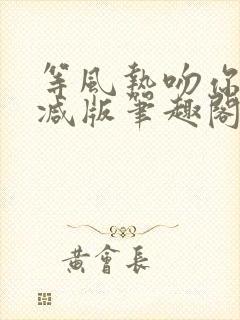 等風熱吻你
减版筆趣閣
黃會長